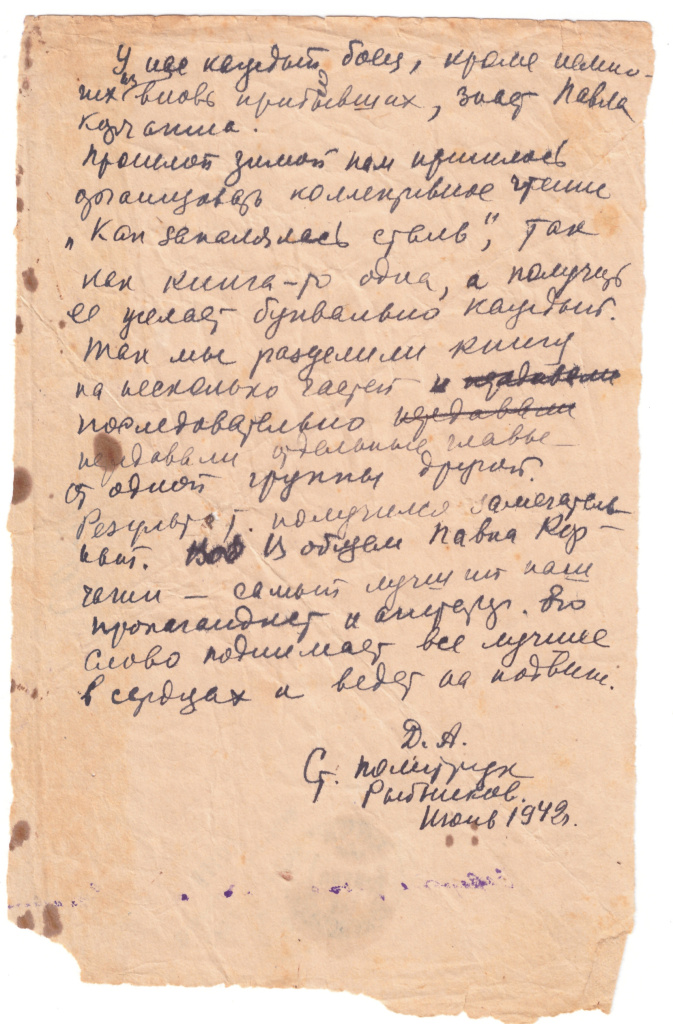 У нас каждый боец, кроме немно-
гих из вновь прибывших, знает Павла
Корчагина.
Прошлой зимой нам пришлось
организовать коллективное чтение
„Как закалялась сталь", так
как книга-то одна, а получить
ее желает буквально каждый.
Так мы разделили книгу
на несколько частей и передавали
последовательно передавали
передавали отдельные главы –
от одной группы другой.
Результат получился замечатель-
ный. В общем Павка Кор-
чагин – самый лучший наш
пропагандист и агитатор. Его
слово поднимает все лучшее
в сердцах и ведет на подвиг.
Д. А.
Ст. политрук
Рыбников.
Июнь 1942 г.